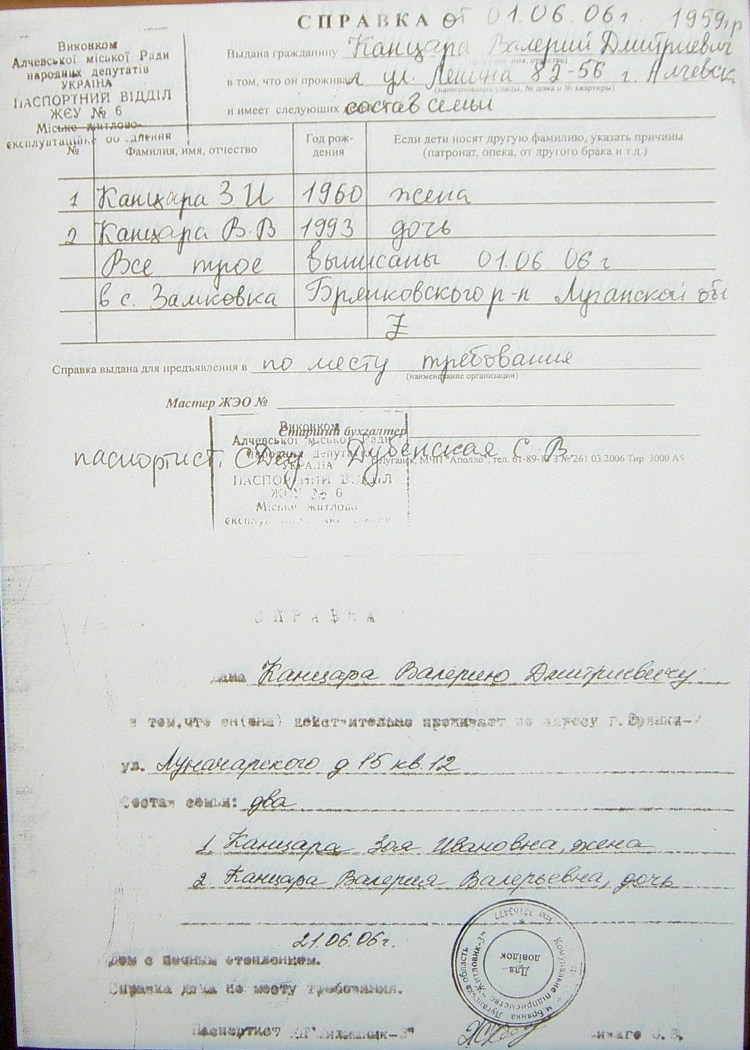 СПРАВКА от 01.06.06г. 1959г.р
Виконком
Алчевської міської Ради
народних депутатів
УКРАЇНА
ПАСПОРТНИЙ ВІДДІЛ
ЖЄУ № 6
Міське житлово-
експлуатаційне об'єднення
Выдана гражданину Канцара Валерий Дмитриевич
в том, что он проживал ул. Ленина 82-56 г. Алчевск
(наименование улицы, № дома и № квартиры)
и имеет следующих состав семьи
№ Фамилия, имя, отчество Год рож-дения Если дети носят другую фамилию, указать причины (патронат, опека, от другого брака и т.л.)
1 Канцара З И 1960 жена
2 Канцара В.В 1993 дочь
Все трое выписаны 01.06.06г
в с. Замковка Брянковского р-н Луганской обл
Z
Справка выдана для предъявления в по месту требования
(наименование организации)
Мастер ЖЭО №
Старший бухгалтер
Виконком
Алчевської міської Ради
народних депутатів
УКРАЇНА
ПАСПОРТНИЙ ВІДДІЛ
ЖЄУ № 6
Міське житлово-
паспортист. Дубенская С. В
г. Луганск, МЧП "Аполло", тел. 261 03.2006 Тир 3000 А5
СПРАВКА
дана Канцара Валерию Дмитриевичу
в том, что он(она) действительно проживает по адресу г. Брянка
ул. Луначарского д 15 кв. 12
Состав семьи: два
1 Канцара Зоя Ивановна, жена
2. Канцара Валерия Валерьевна, дочь
21.06.06г.
Дом с печным отоплением.
Справка дана по месту требования.
Луганська область м Брянка
Комунальне підприємство "Житловик-3"
Для довідок
Паспортист КП"Жилищник-3"